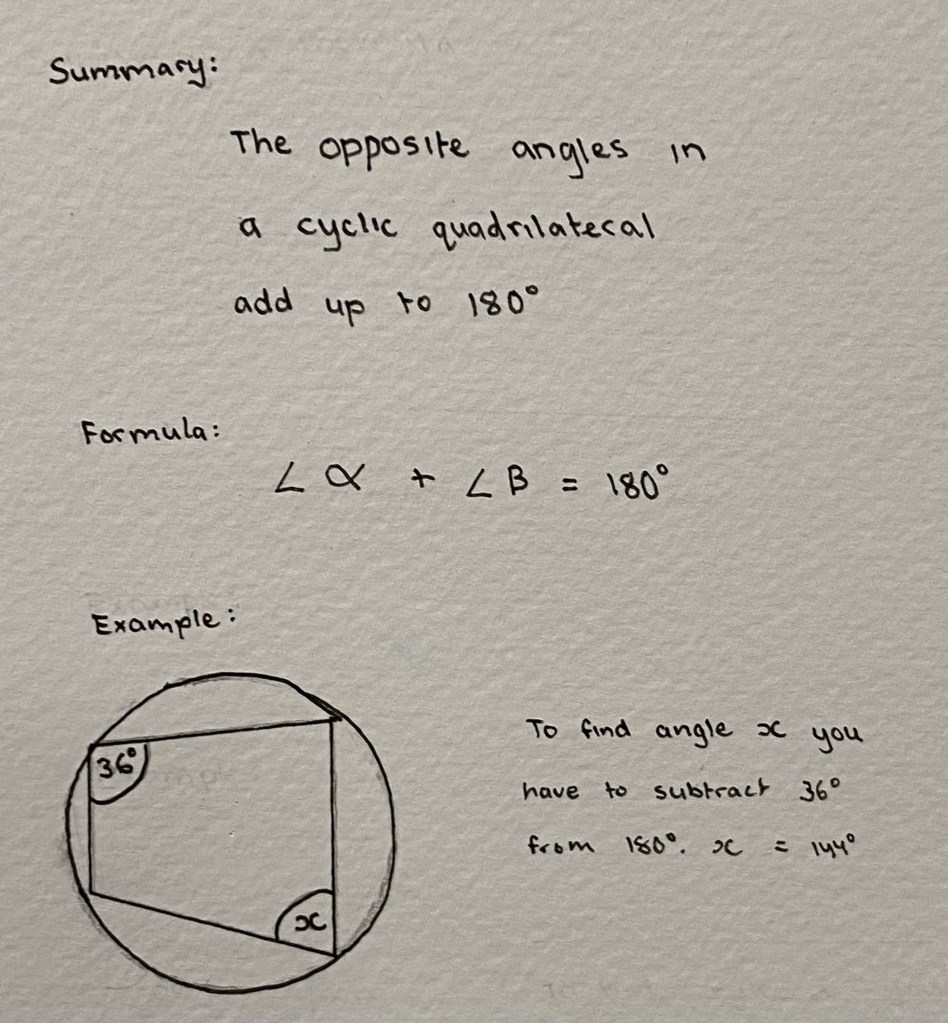 Summary:
The opposite angles in
a cyclic quadrilateral
add up to 180°
Formula:
∠ α + ∠ β = 180°
Example:
36°
x
To find angle x you
have to subtract 36°
from 180°. x = 144°